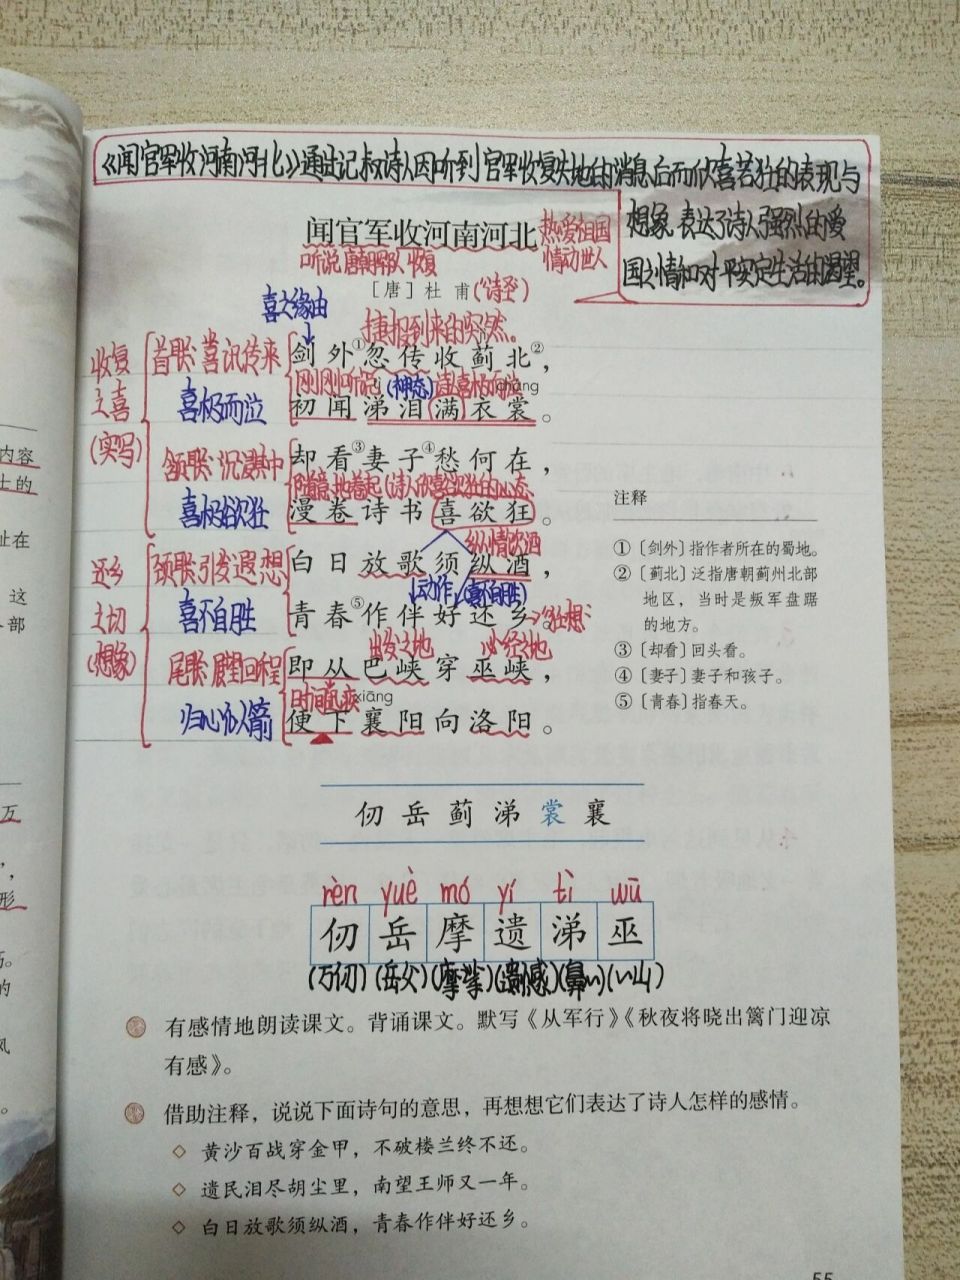 《闻官军收河南河北》通过记叙诗人因听到官军收复失地的消息后而欣喜若狂的表现与
想象,表达了诗人强烈的爱
国之情和对平实定生活的渴望。
闻官军收河南河北
热爱祖国
情动世人
听说 唐朝军队 收复
[唐]杜 甫(“诗圣”)
喜之缘由
捷报到来的突然。
收复
之喜
(实写)
首联:喜讯传来
喜极而泣
剑外①忽传收蓟北②,
刚刚听说
(神态)
cháng
初闻涕泪满衣裳。
颔联:沉浸其中
喜极欲狂
却看③妻子④愁何在,
随意地卷起(诗人欣喜欲狂的心态
漫卷诗书喜欲狂。
纵情饮酒
还乡
之切
(想象)
颈联:引发遐想
喜不自胜
白日放歌须纵酒,
动作(喜不自胜)
青春⑤作伴好还乡。
出发之地
必经之地
尾联:展望回程
归心似箭
即从巴峡穿巫峡,
xiāng
便下襄阳向洛阳。
注释
①〔剑外〕指作者所在的蜀地。
②〔蓟北〕泛指唐朝蓟州北部
地区,当时是叛军盘踞
的地方。
③〔却看〕回头看。
④〔妻子〕妻子和孩子。
⑤〔青春〕指春天。
仞 岳 蓟 涕 裳 襄
rèn yuè mó yí tì wū
仞 岳 摩 遗 涕 巫
(万仞)(岳父)(摩挲)(遗憾)(鼻〃)(〃山)
有感情地朗读课文。背诵课文。默写《从军行》《秋夜将晓出篱门迎凉
有感》。
借助注释,说说下面诗句的意思,再想想它们表达了诗人怎样的感情。
◇ 黄沙百战穿金甲,不破楼兰终不还。
◇ 遗民泪尽胡尘里,南望王师又一年。
◇ 白日放歌须纵酒,青春作伴好还乡。
55